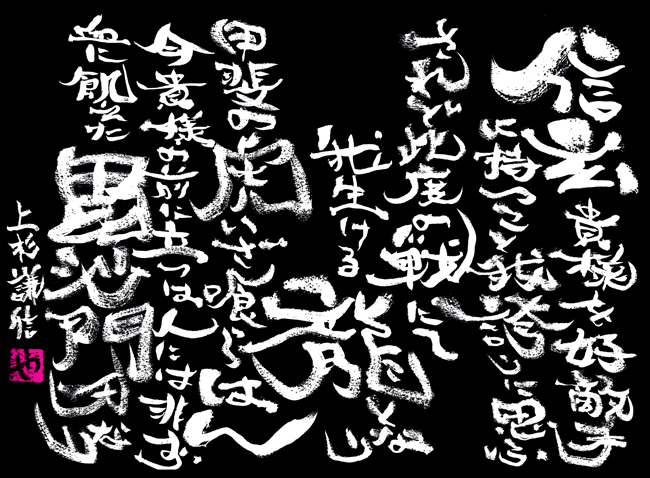 信玄 貴様を好敵手
に持つこと我誇りに思ふ
されど此度の戦にて
我生ける龍となり
甲斐の虎いざ喰らはん
今貴様の前に立つは人には非ず
血に飢えた毘沙門天
上杉謙信